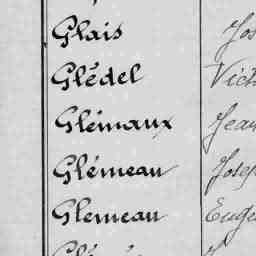 Glais
Glédel Vict
Glémaux Jean
Glémeau Josep
Glemeau Euge